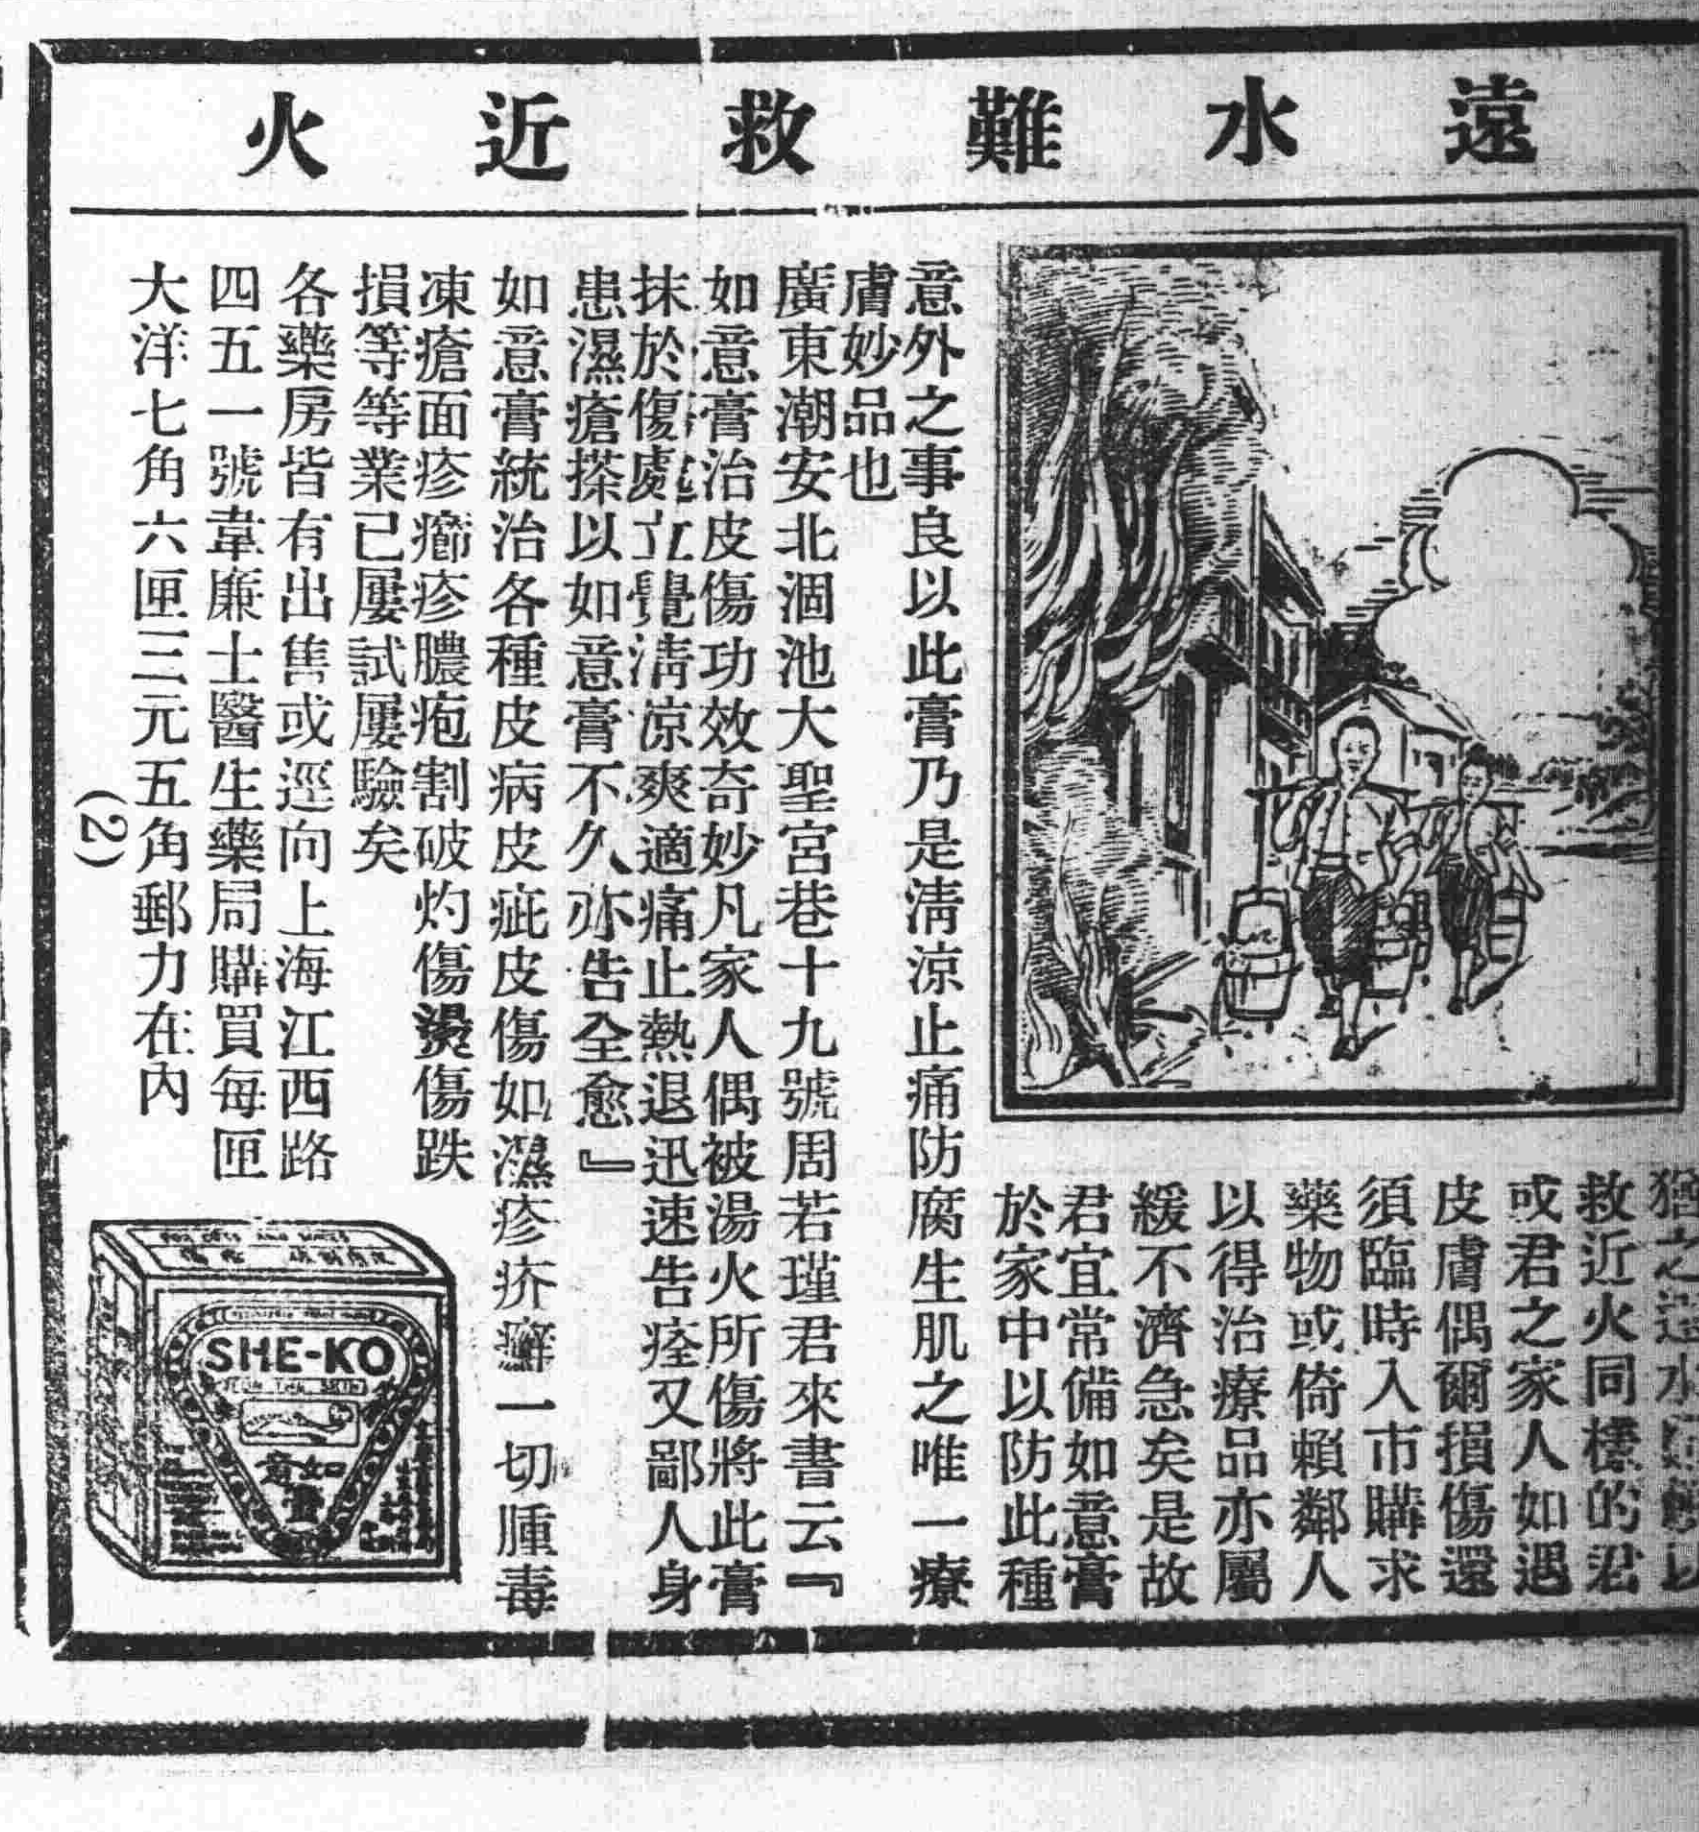 遠水難救近火
猶之遠水難救以
救近火同樣的君
或君之家人如遇
皮膚偶爾損傷還
須臨時入市購求
藥物或倚賴鄰人
以得治療品亦屬
緩不濟急矣是故
君宜常備如意膏
於家中以防此種
意外之事良以此膏乃是淸涼止痛防腐生肌之唯一療
膚妙品也
廣東潮安北涸池大聖宮巷十九號周若瑾君來書云『
如意膏治皮傷功效奇妙凡家人偶被湯火所傷將此膏
抹於傷處立覺淸涼爽適痛止熱退迅速告痊又鄙人身
患濕瘡搽以如意膏不久亦告全愈』
如意膏統治各種皮病皮疵皮傷如濕疹疥癬一切腫毒
凍瘡面疹癤疹膿疱割破灼傷燙傷跌
損等等業已屢試屢驗矣
各藥房皆有出售或逕向上海江西路
四五一號韋廉士醫生藥局購買每匣
大洋七角六匣三元五角郵力在內
(2)
FOR CUTS AND
SHE-KO
FOR THE SKIN
如意
膏